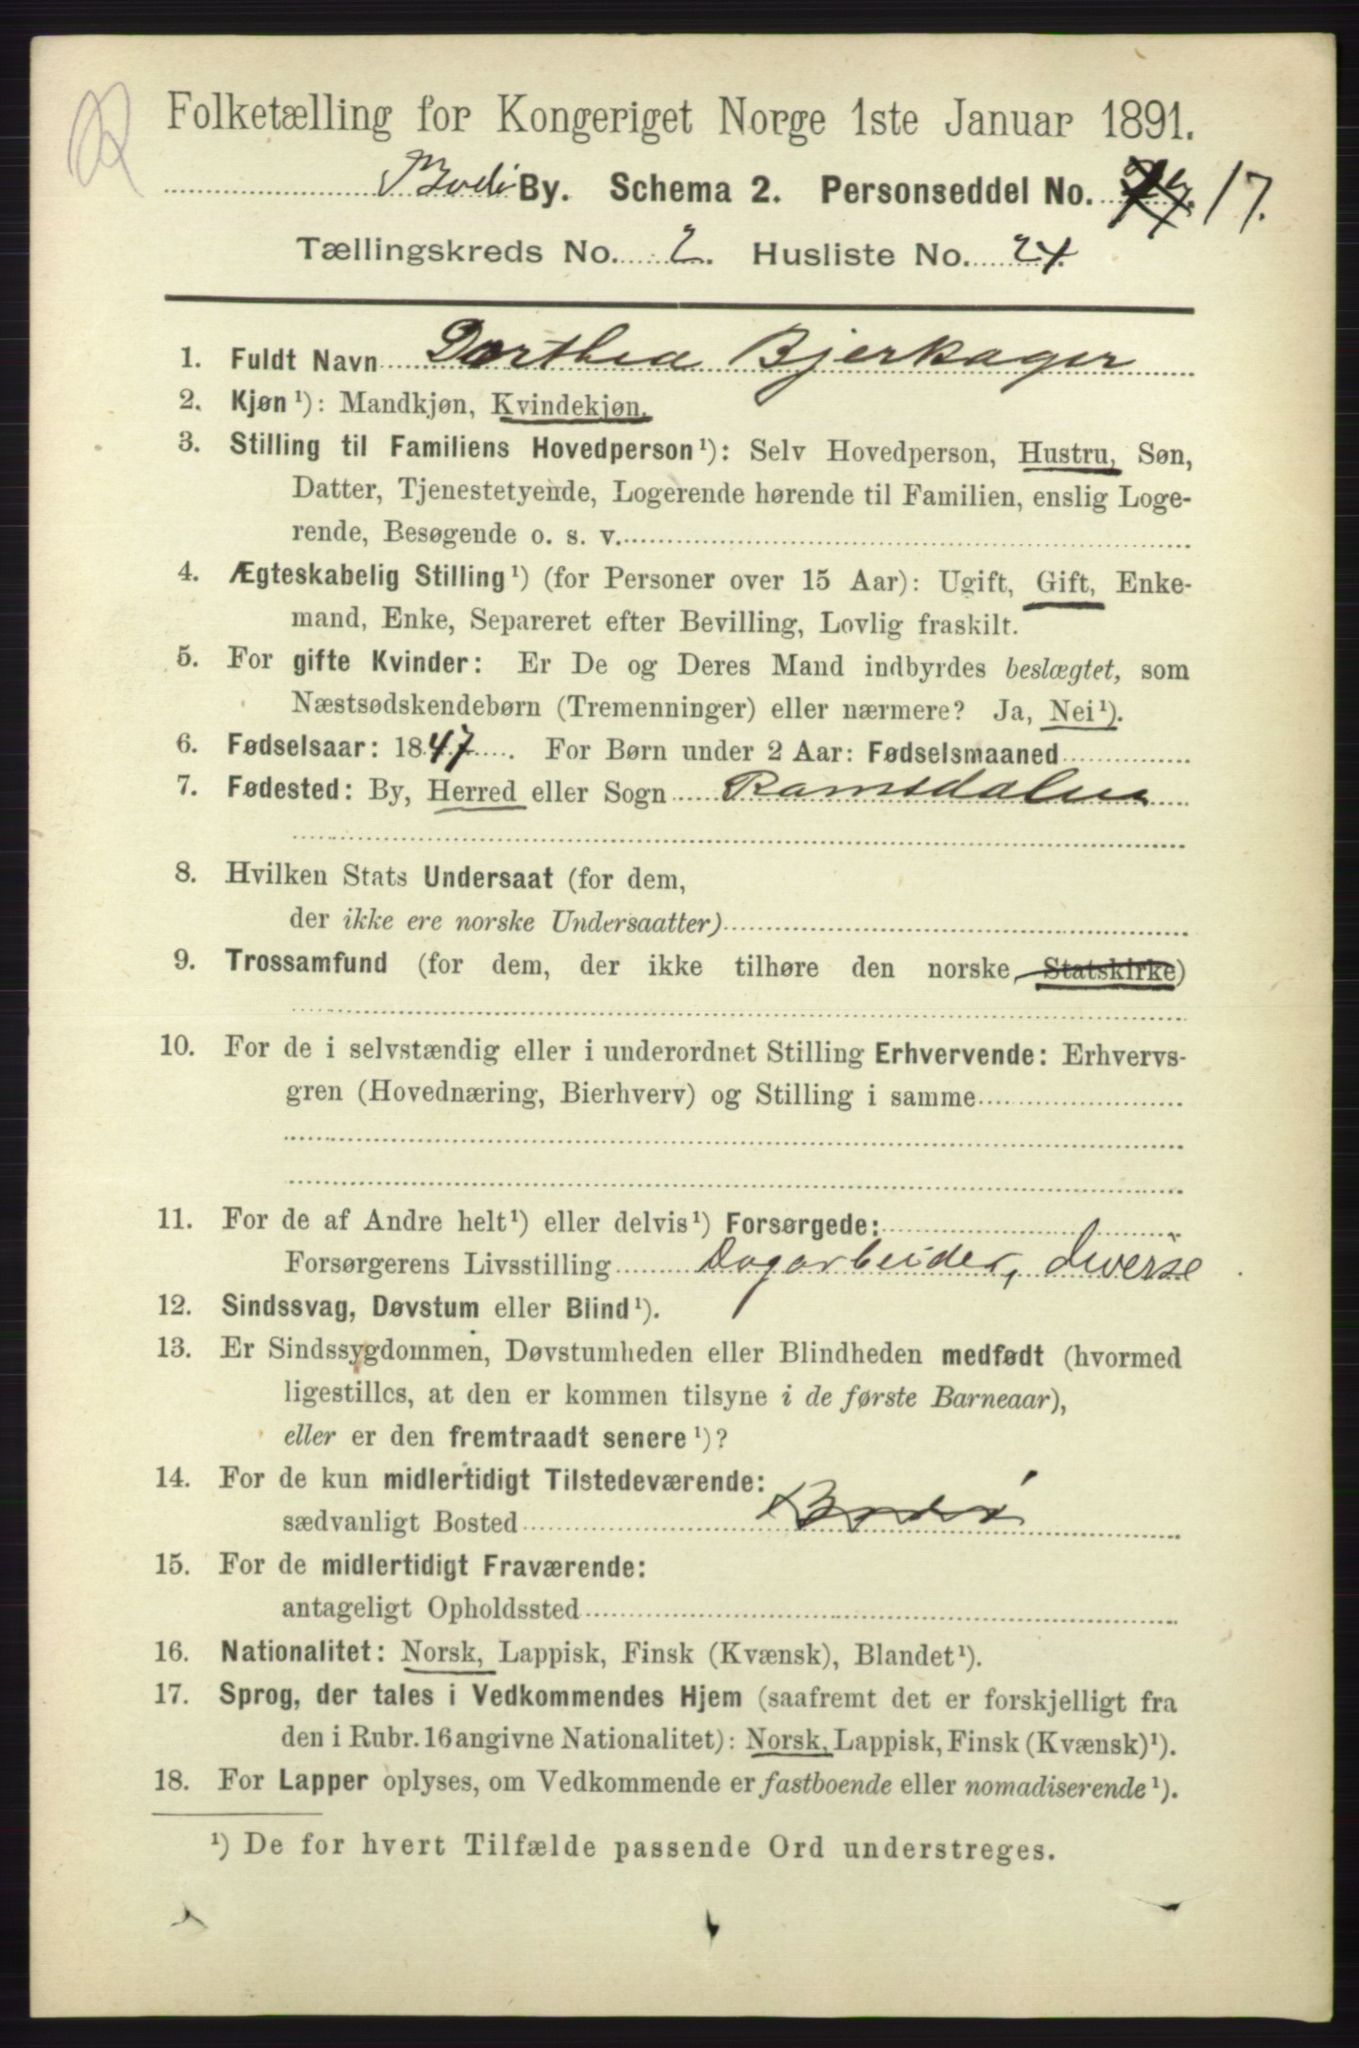 Folketælling for Kongeriget Norge 1ste Januar 1891.
Bodø By. Schema 2. Personseddel No. 17.
Tællingskreds No. 2. Husliste No. 24.
1. Fuldt Navn Dorthea Bjerkager
2. Kjøn¹): Mandkjøn, Kvindekjøn.
3. Stilling til Familiens Hovedperson¹): Selv Hovedperson, Hustru, Søn,
Datter, Tjenestetyende, Logerende hørende til Familien, enslig Loge-
rende, Besøgende o. s. v.
4. Ægteskabelig Stilling¹) (for Personer over 15 Aar): Ugift, Gift, Enke-
mand, Enke, Separeret efter Bevilling, Lovlig fraskilt.
5. For gifte Kvinder: Er De og Deres Mand indbyrdes beslægtet, som
Næstsødskendebørn (Tremenninger) eller nærmere? Ja, Nei¹).
6. Fødselsaar: 1847. For Børn under 2 Aar: Fødselsmaaned
7. Fødested: By, Herred eller Sogn Ramsdalen
8. Hvilken Stats Undersaat (for dem,
der ikke ere norske Undersaatter)
9. Trossamfund (for dem, der ikke tilhøre den norske Statskirke)
10. For de i selvstændig eller i underordnet Stilling Erhvervende: Erhvervs-
gren (Hovednæring, Bierhverv) og Stilling i samme
11. For de af Andre helt¹) eller delvis¹) Forsørgede:
Forsørgerens Livsstilling Dagarbeider, diverse
12. Sindssvag, Døvstum eller Blind¹).
13. Er Sindssygdommen, Døvstumheden eller Blindheden medfødt (hvormed
ligestilles, at den er kommen tilsyne i de første Barneaar),
eller er den fremtraadt senere¹)?
14. For de kun midlertidigt Tilstedeværende:
sædvanligt Bosted Bodø
15. For de midlertidigt Fraværende:
antageligt Opholdssted
16. Nationalitet: Norsk, Lappisk, Finsk (Kvænsk), Blandet¹).
17. Sprog, der tales i Vedkommendes Hjem (saafremt det er forskjelligt fra
den i Rubr. 16 angivne Nationalitet): Norsk, Lappisk, Finsk (Kvænsk)¹).
18. For Lapper oplyses, om Vedkommende er fastboende eller nomadiserende¹).
¹) De for hvert Tilfælde passende Ord understreges.